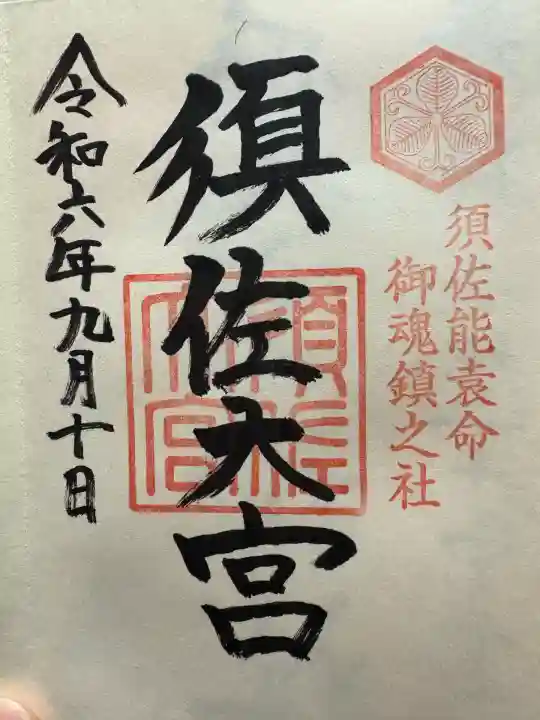 須佐能袁命
御魂鎮之社
須佐大宮
令和六年九月十日